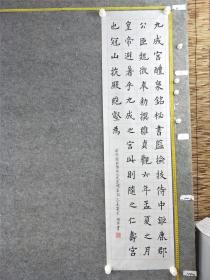 九成宮醴泉銘秘書監檢校侍中鉅鹿郡
公臣魏徵奉勑撰維貞觀六年孟夏之月
皇帝避暑乎九成之宮此則隨之仁壽宮
也冠山抗殿絕壑為